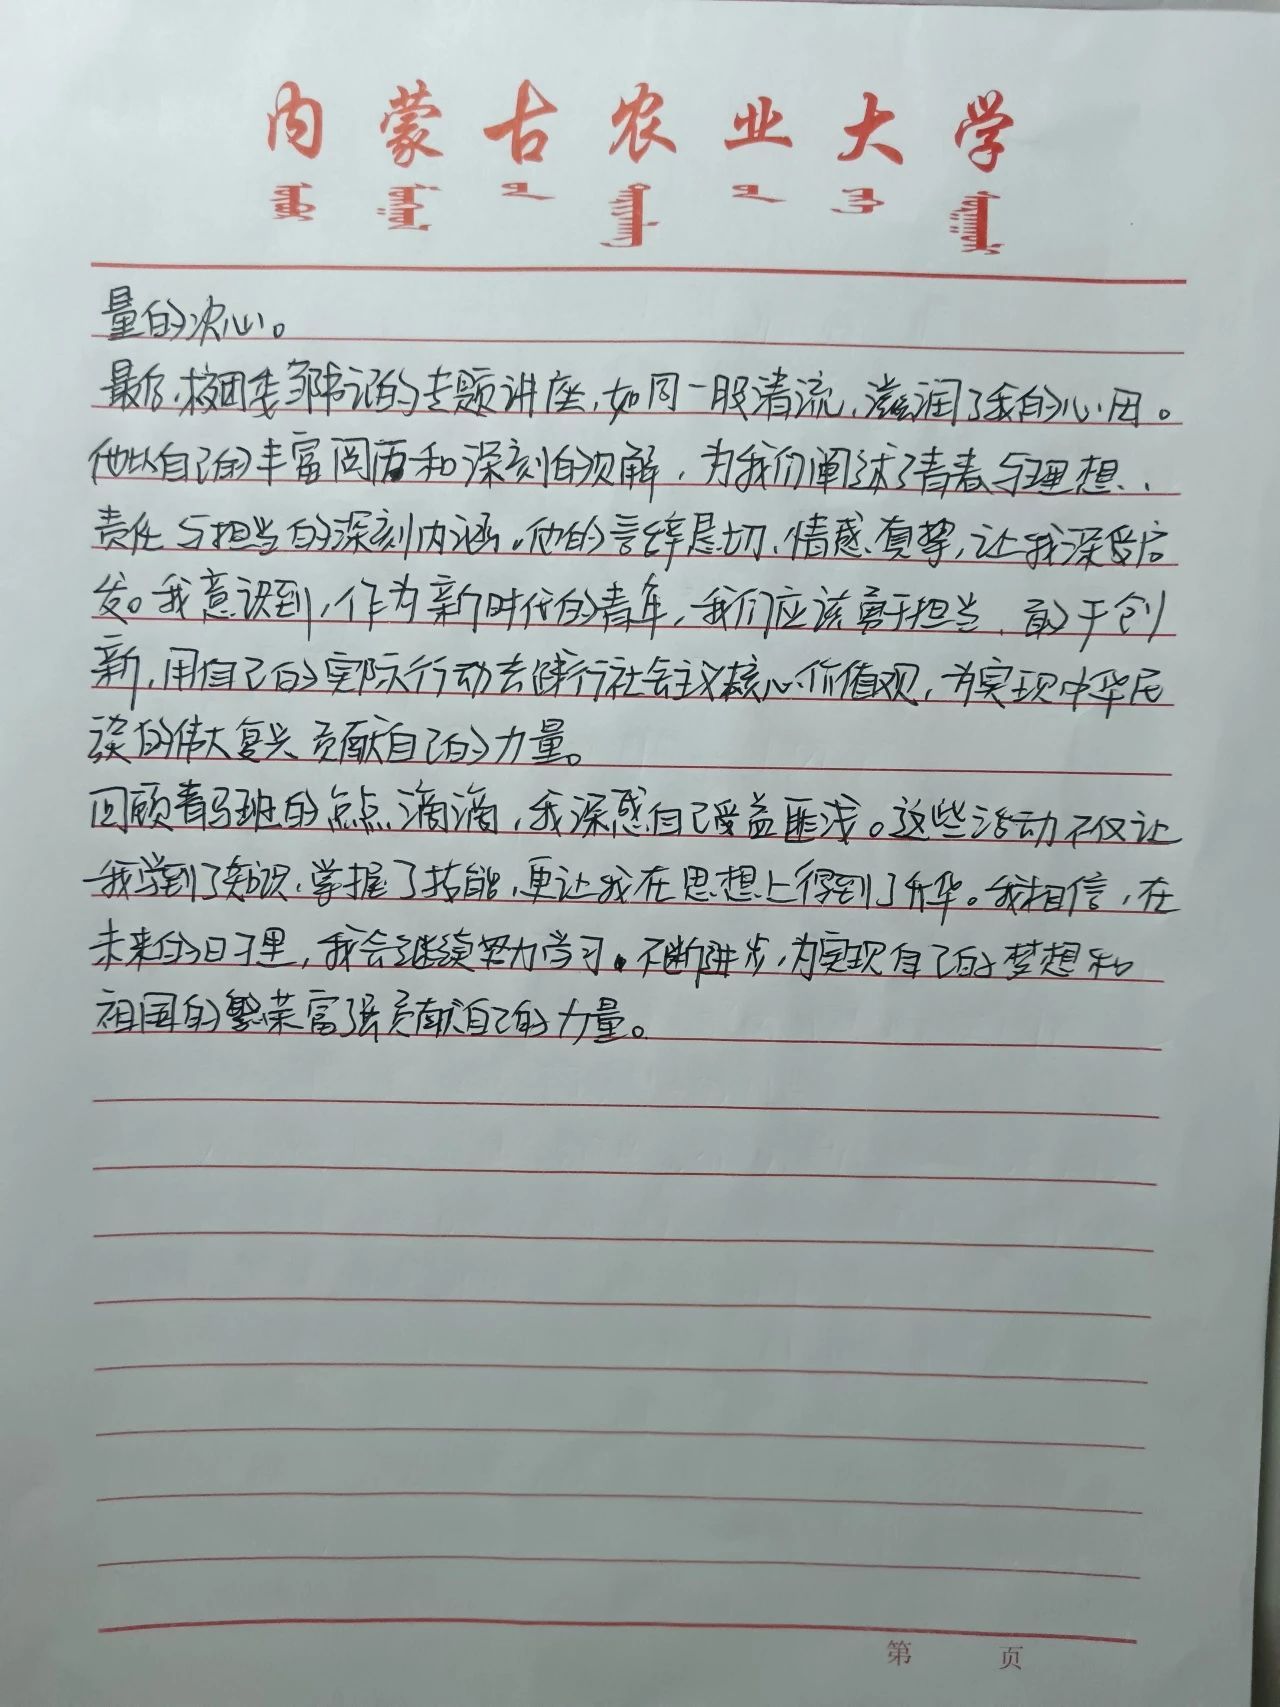 内蒙古农业大学
量的决心。
最后,校团委邹书记的专题讲座,如同一股清流,滋润了我的心田。
他以自己的丰富阅历和深刻的见解,为我们阐述了青春与理想、
责任与担当的深刻内涵。他的言辞恳切、情感真挚,让我深受启
发。我意识到,作为新时代的青年,我们应该勇于担当、敢于创
新,用自己的实际行动去践行社会主义核心价值观,为实现中华民
族的伟大复兴贡献自己的力量。
回顾青马班的点点滴滴,我深感自己受益匪浅。这些活动不仅让
我学到了知识、掌握了技能,更让我在思想上得到了升华。我相信,在
未来的日子里,我会继续努力学习、不断进步,为实现自己的梦想和
祖国的繁荣富强贡献自己的力量。
第 页